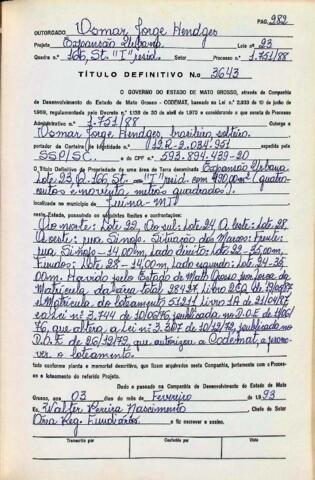 PAG. 982
OUTORGADO, Usmar Jorge Hendges
Projeto Expansão Urbana Lote n.º 23
Quadra n.º 166, St. "I" resid. Processo n.º 1.751/88
TÍTULO DEFINITIVO N.o 3643
O GOVERNO DO ESTADO DE MATO GROSSO, através da Companhia
de Desenvolvimento do Estado de Mato Grosso - CODEMAT, com base na Lei n.º 2.933 de 10 de junho de
1969, regulamentada pelo Decreto n.º 1.138 de 30 de abril de 1970 e considerando o que consta do Processo
Administrativo n.º 1.751/88 Outorga a
Usmar Jorge Hendges, brasileiro, solteiro.
portador da Carteira de Identidade n.º 12R-2.034.951
SSP/SC. e do CPF n.º 593.894.439-20
O Título Definitivo de Propriedade de uma área de Terra denominada Expansão Urbana
Lote 23, Q. 166, St. "I" resid. com 490,00m² (quatro-
centos e noventa metros quadrados).
localizada no município de Juína-MT
neste Estado, possuindo os seguintes limites e confrontações:
Ao norte: Lote 22, Ao sul: Lote 24, A leste: Lote 28
A oeste: rua Sinop. Situação dos Marcos: Frente:
rua Sinop - 14,00m, Lado direito: Lote 22-35,00m,
Fundos: Lote 28 - 14,00m, Lado esquerdo: Lote 24-35,
00m. Havido pelo Estado de Mato Grosso por força da
Matrícula da área total 28437 Livro
e Matrícula do loteamento 51211 Livro 1A de 21/04/87
e a Lei n.º 3.744 de 10/06/76, publicada no D.O.E de
76, que altera a Lei n.º 3.307 de 10/12/72, publicada no
D.O.E de 26/12/72, que autorizou a Codemat, a promo-
ver o loteamento.
tudo conforme planta e memorial descritivo, que ficam arquivados nesta Companhia, juntamente com o Proces-
so e loteamento do referido Projeto.
Dado e passado na Companhia de Desenvolvimento do Estado de Mato
Grosso, aos 03 dias do mês de Fevereiro de 1.993
Eu, Walter Pereira Nascimento Chefe do Setor
Reg. Fundiários o fiz escrever e assino.
Transcrito por
Conferido por
Visto